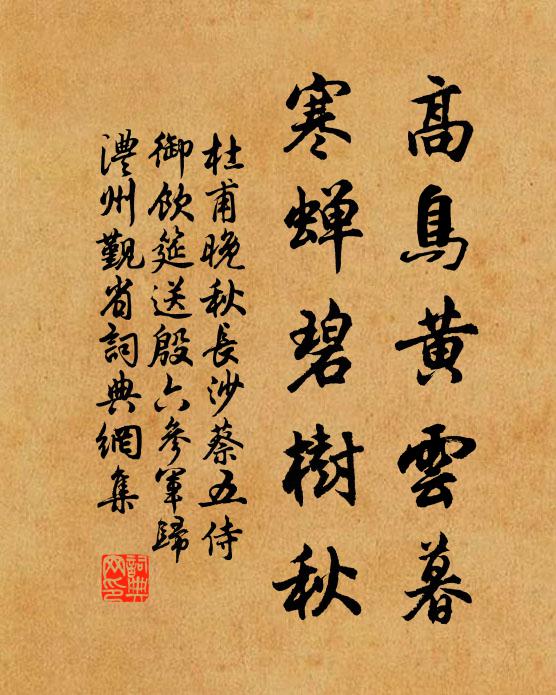 高鳥黃雲暮
寒蝉碧樹秋
杜甫晚秋長沙蔡五侍
御飲筵送殷六參軍歸
澧州觀省詞典網集
詞典
网印